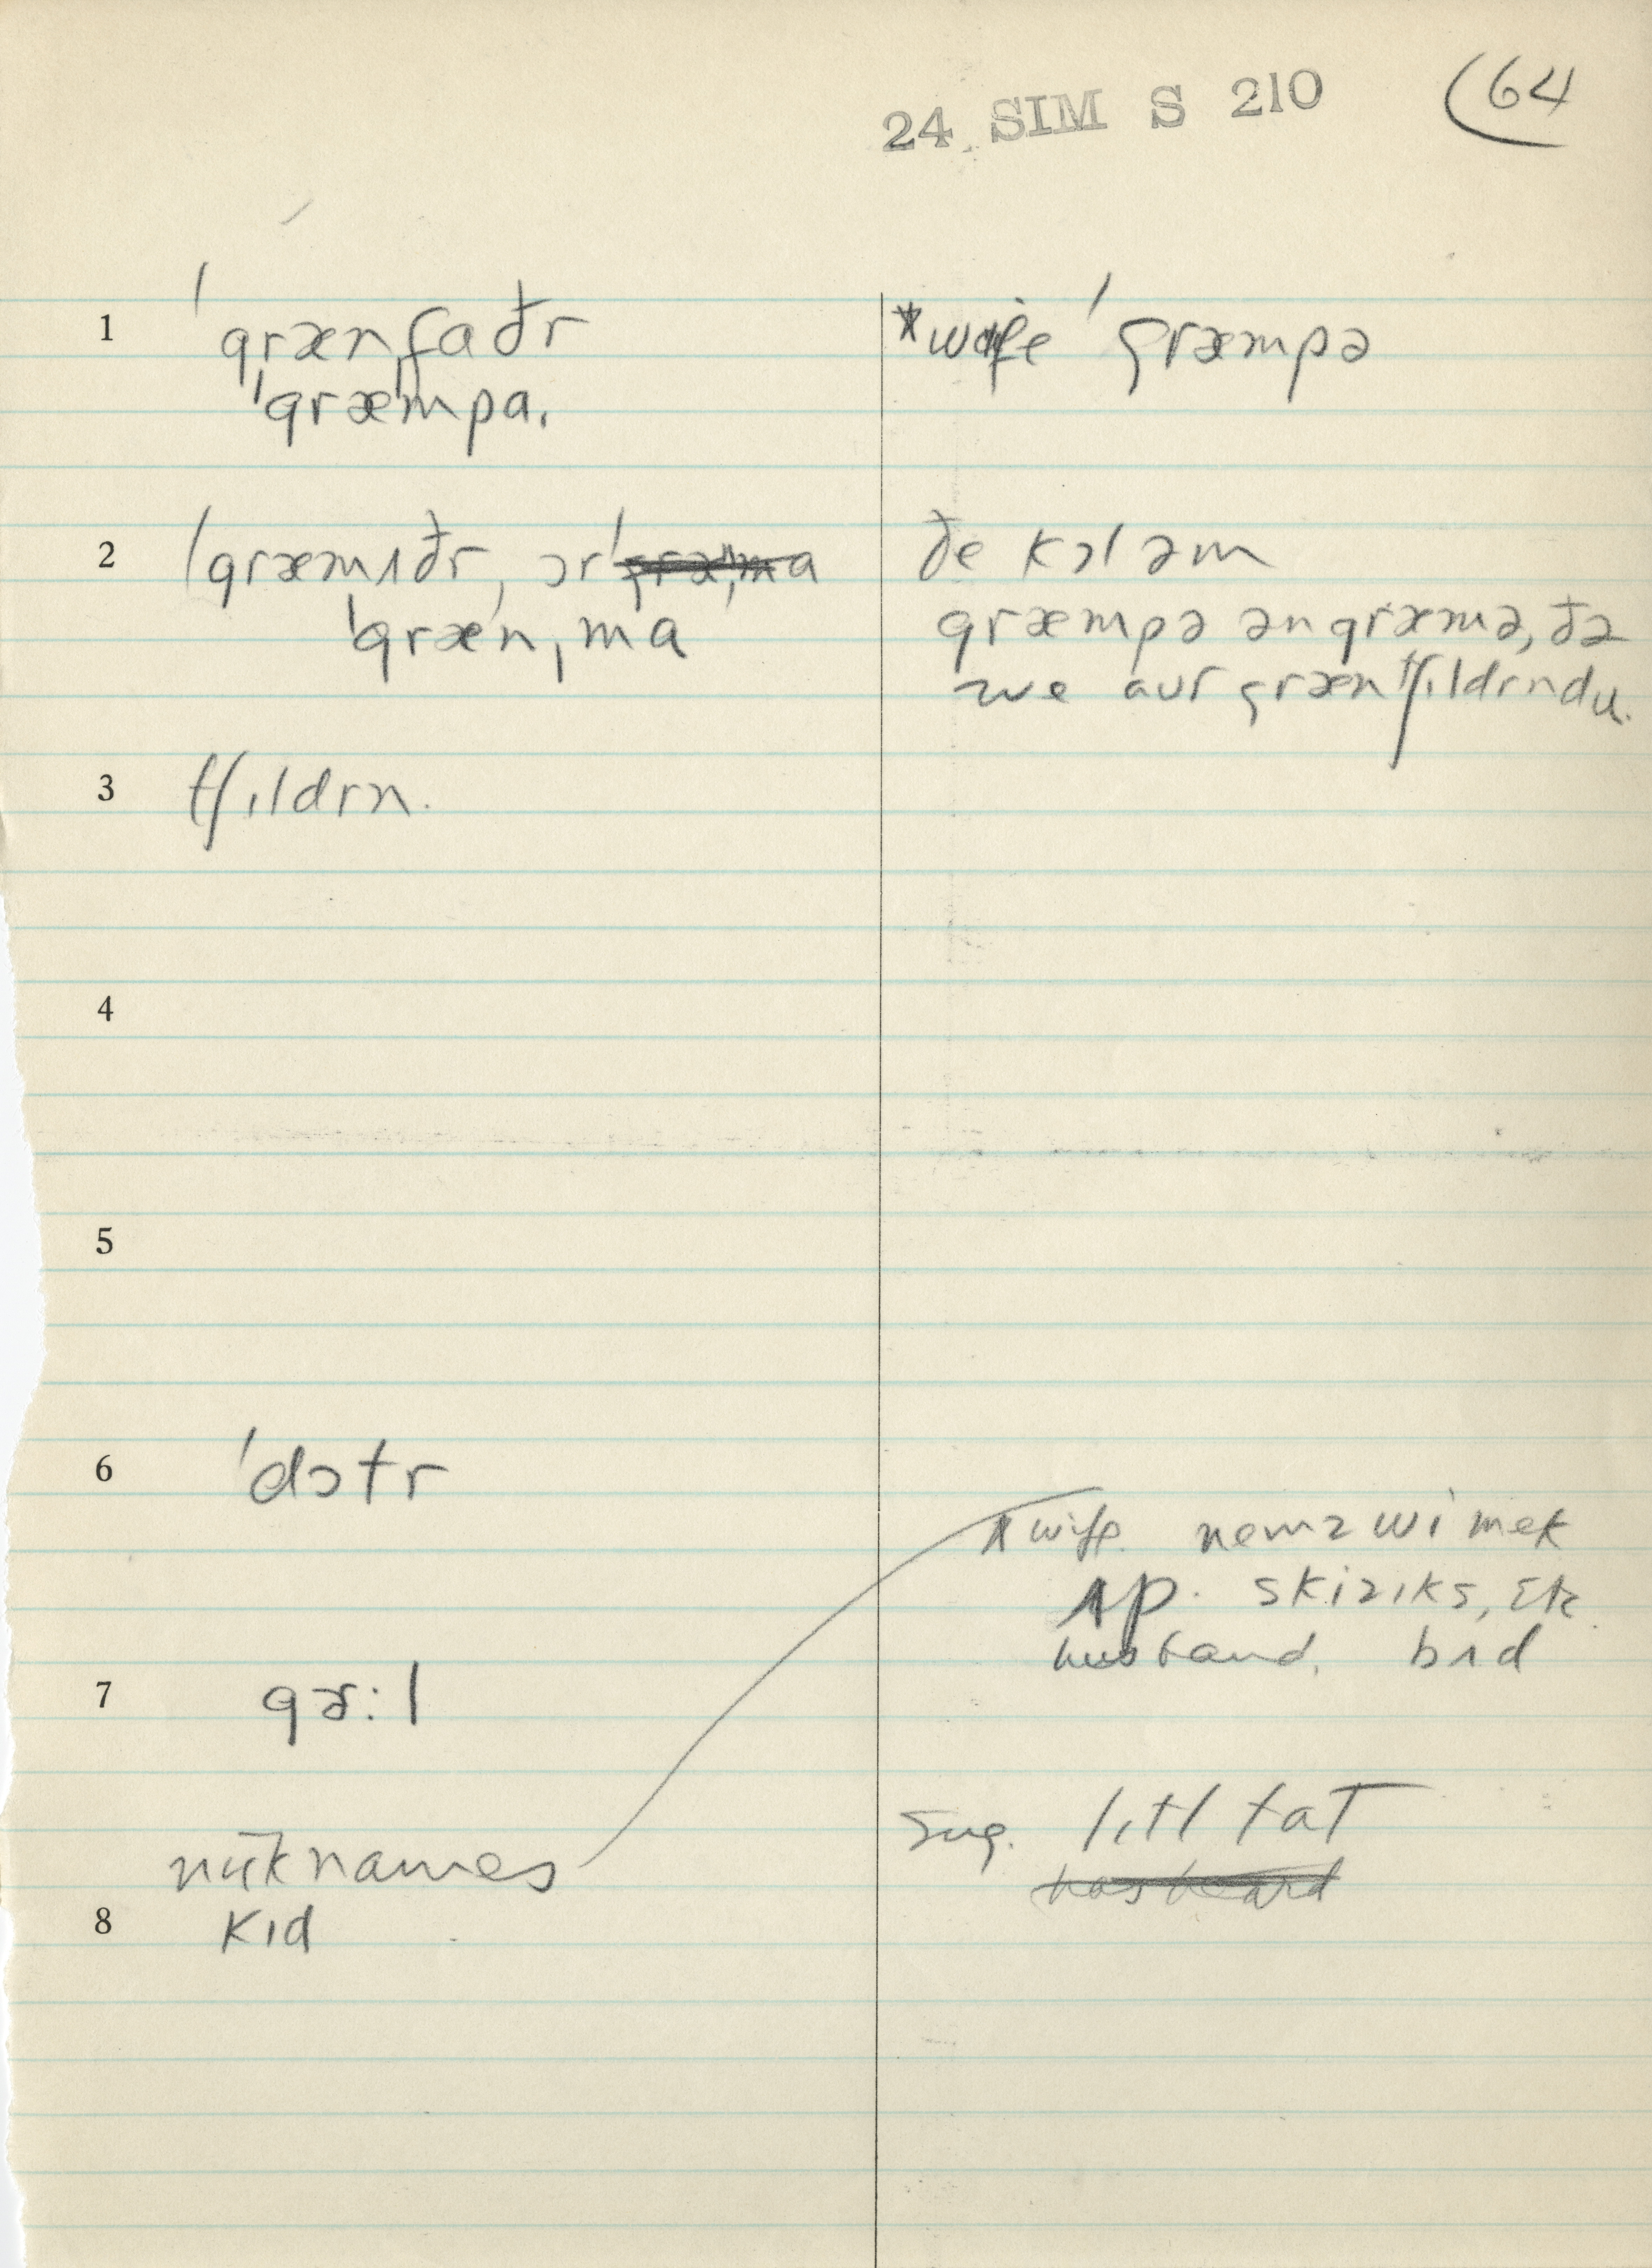 24 SIM S 210 (64
1 ˈgrænˌfaðr
ˈgræmˌpa.
2 ˈgræmʌðr, ɔr
ˈgrænˌma
3 tʃɪldrn.
4
5
6 ˈdɔtr
7 gɚ:l
nicknames
8 kɪd
*wife ˈgræmpə
ðe kɔl əm
græmpə ən græmə, ðə
we aur græntʃɪldrn du.
wife. nemz wi mek
ʌp. skizɪks, etc
husband. bʌd
sug. lɪtl tat